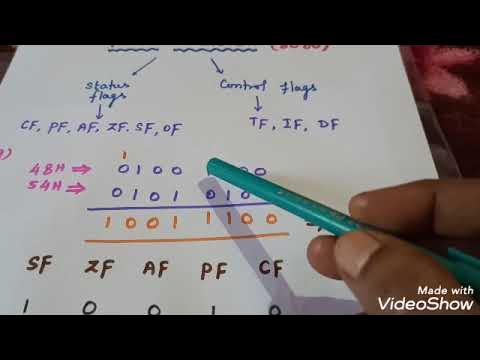 (8086)
Status Control flags
flags
CF, PF, AF, ZF, SF, OF TF, IF, DF
1
48H ⇒ 0100 00
54H ⇒ 0101 010
1001 1100
SF ZF AF PF CF
1 0 0 1 0
Made with
VideoShow